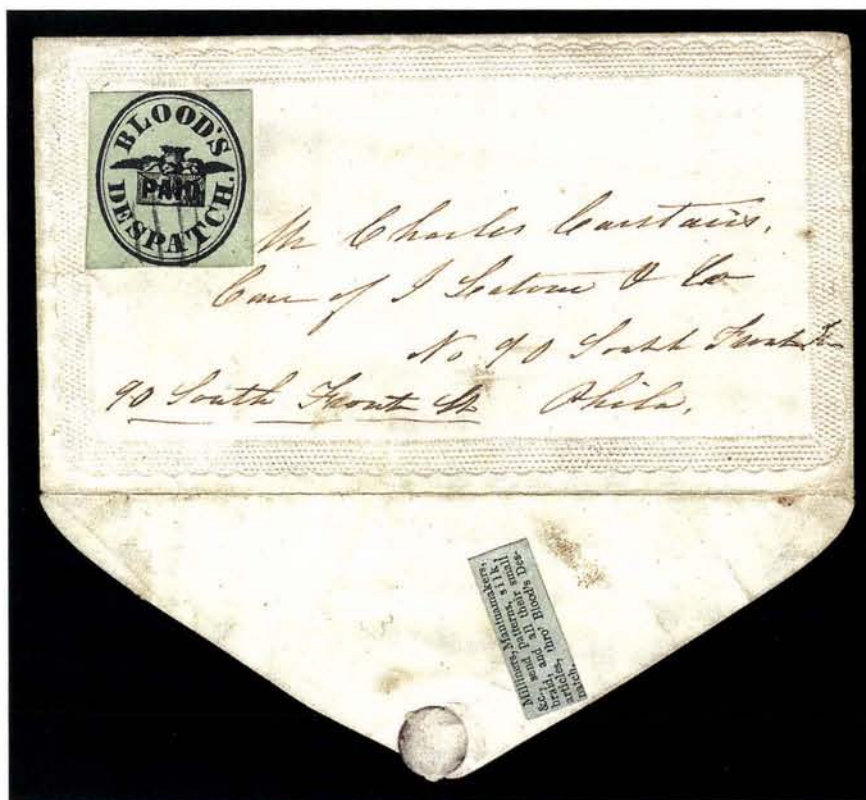 BLOOD'S
PAID
DESPATCH.
Mr Charles Carstairs,
Care of J & Co
No 90 South Front St
90 South Front St Phila,
Milliners, Mantuamakers,
&c., send Patterns, silk
braid, and all their small
articles, thro' Blood's Des-
patch.